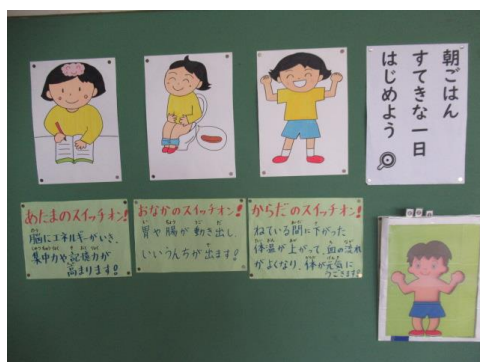 朝ごはん
すてきな一日
はじめよう
あたまのスイッチオン!
脳にエネルギーがいき、
集中力や記憶力が
高まります!
おなかのスイッチオン!
胃や腸が動き出し、
いいうんちが出ます!
からだのスイッチオン!
ねている間に下がった
体温が上がって、血の流れ
がよくなり、体が元気に
うごきます!